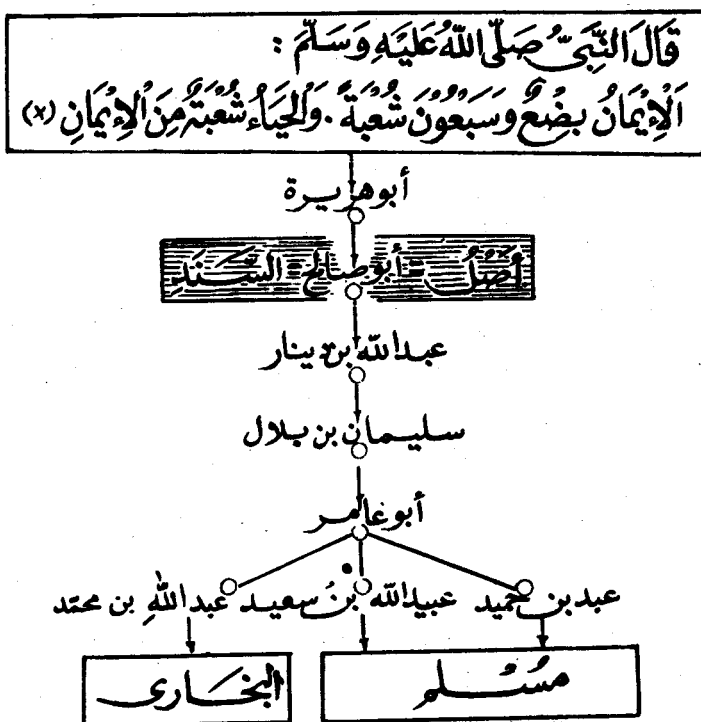 قَالَ النَّبِيُّ صَلَّى اللّٰهُ عَلَيْهِ وَسَلَّمَ :
اَلْإِيْمَانُ بِضْعٌ وَسَبْعُوْنَ شُعْبَةً . وَالْحَيَاءُ شُعْبَةٌ مِنَ الْإِيْمَانِ (x)
أبو هريرة
أَصْلُ - أبو صالح - السَّنَدِ
عبد الله بن دينار
سليمان بن بلال
أبو عامر
عبد بن حميد عبيد الله بن سعيد عبد الله بن محمد
مُسْلم البُخَارى